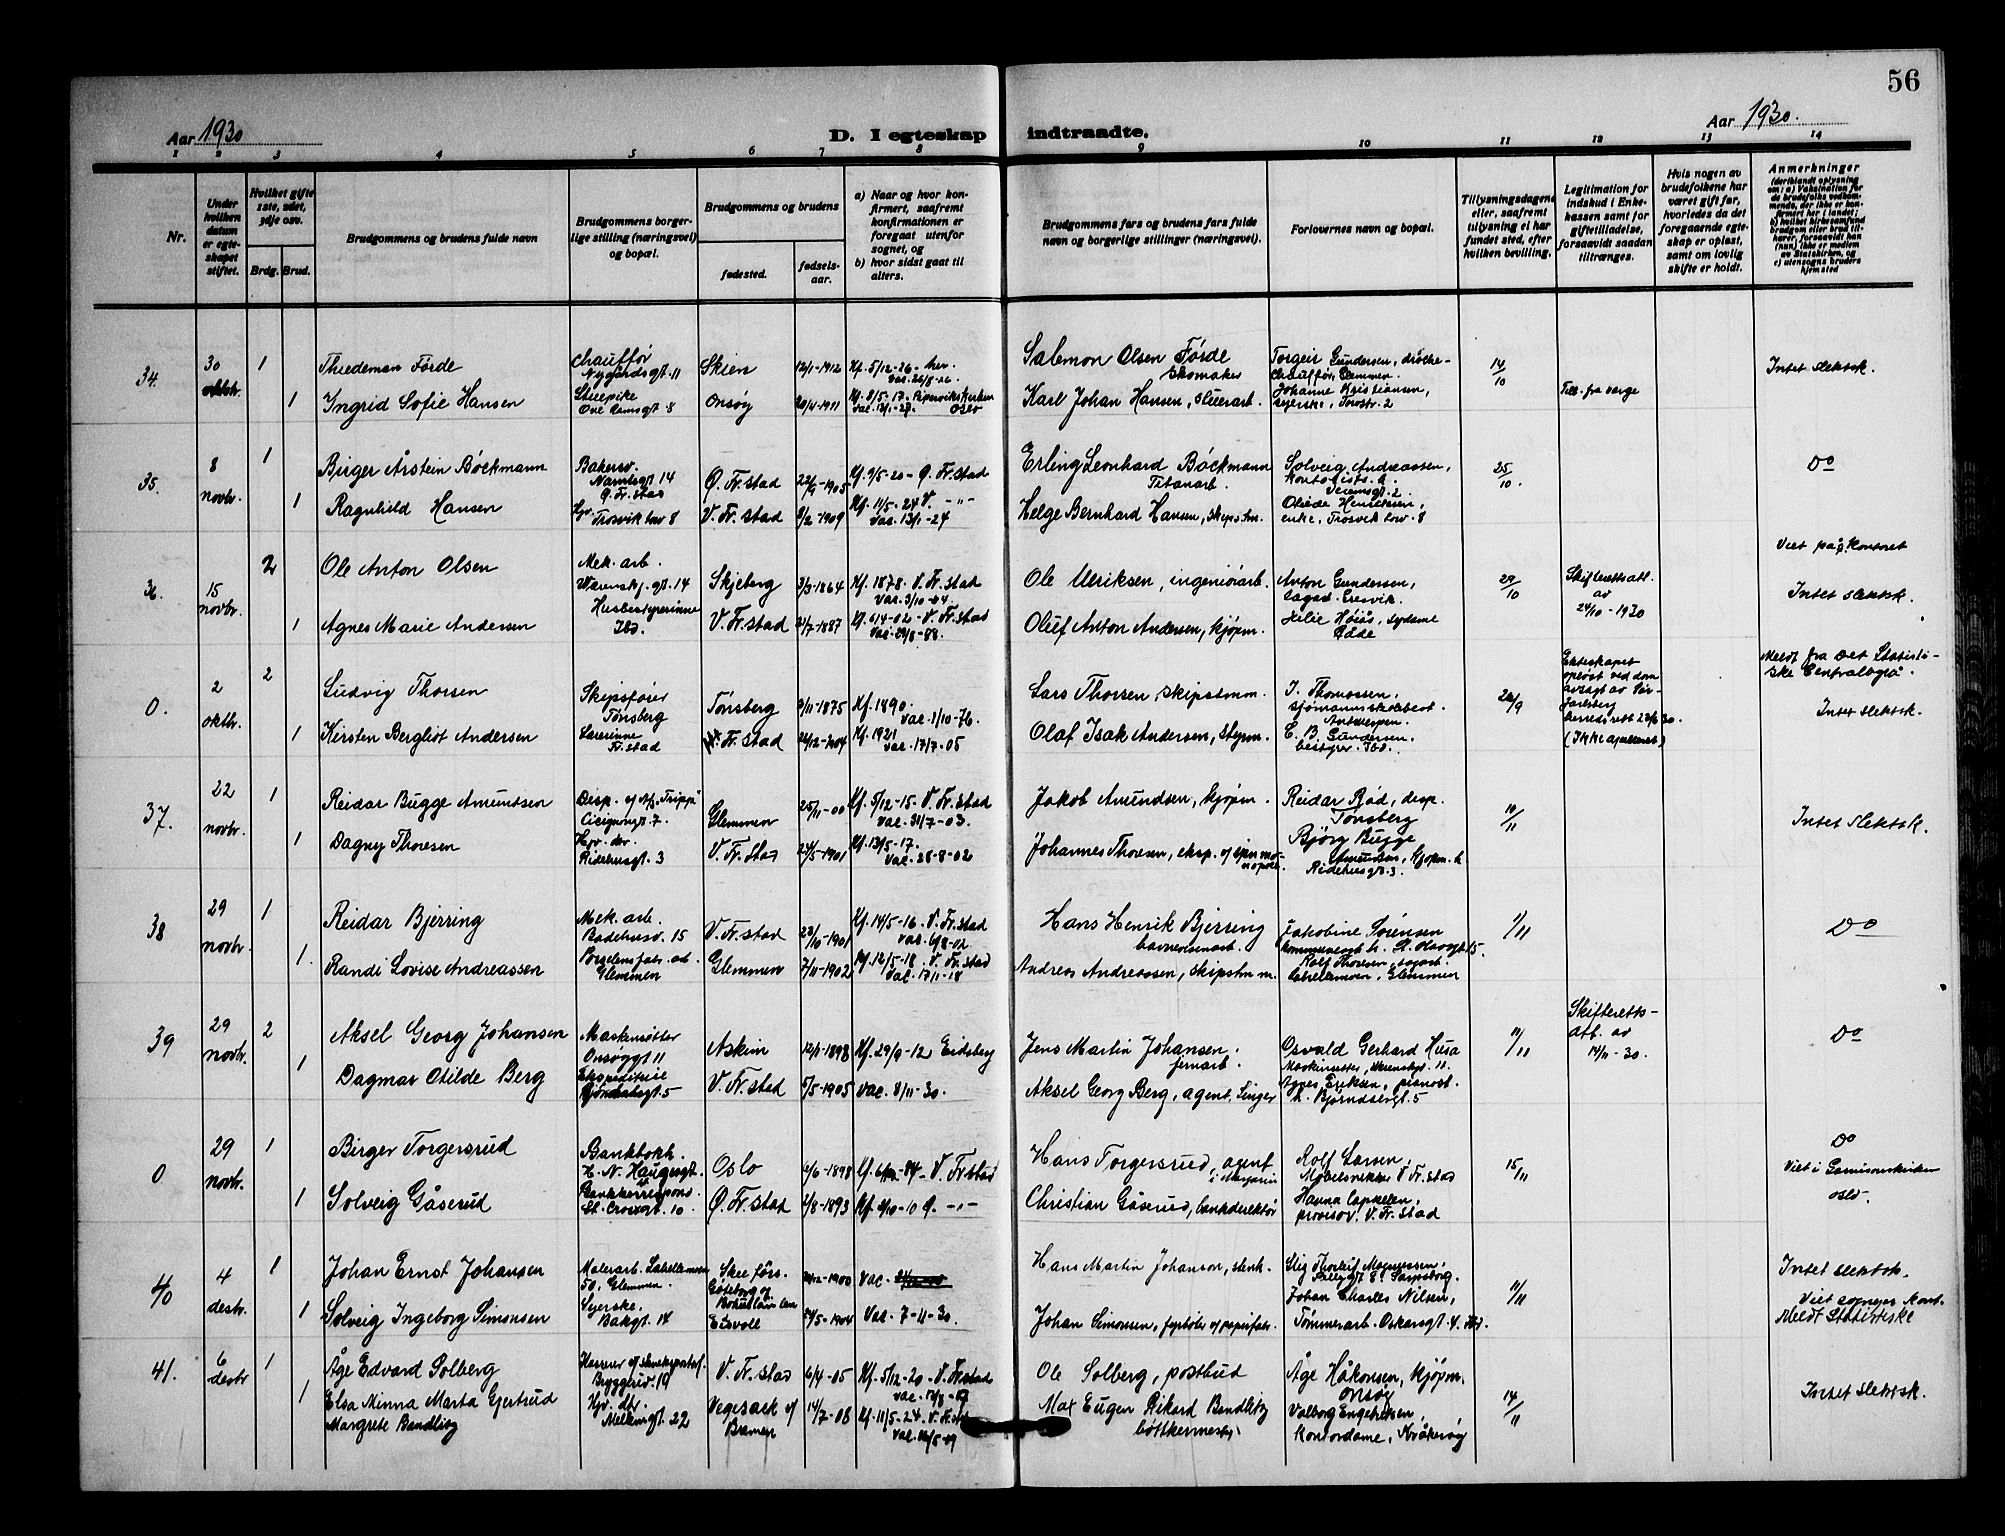 56
Aar 1930
D. I egteskap indtraadte.
Aar 1930.
1 2 3 4 5 6 7 8 9 10 11 12 13 14
Nr.
Under hvilken datum er egteskapet stiftet.
Hvilket gifte 1ste, 2det, 3dje osv.
Brdg. Brud.
Brudgommens og brudens fulde navn
Brudgommens borgerlige stilling (næringsvei) og bopæl.
Brudgommens og brudens
fødested.
fødselsaar.
a) Naar og hvor konfirmert, saafremt konfirmationen er foregaat utenfor sognet, og
b) hvor sidst gaat til alters.
Brudgommens fars og brudens fars fulde navn og borgerlige stillinger (næringsvei).
Forlovernes navn og bopæl.
Tillysningsdagene eller, saafremt tillysning ei har fundet sted, efter hvilken bevilling.
Legitimation for indskud i Enkekassen samt for giftetilladelse, forsaavidt saadan tiltrænges.
Hvis nogen av brudefolkene har været gift før, hvorledes da det foregaaende egteskap er opløst, samt om lovlig skifte er holdt.
Anmerkninger
34. 30 oktbr. 1 Thiedeman Förde Chauffør Nygårdsgt. 11 Skien 12/1-1912 Kf. 5/12-26 - her. Vac. 26/8-16. Salemon Olsen Förde Skomaker Torgeir Gundersen, drosjechauffør, Glemmen 14/10 Intet slektsk.
1 Ingrid Sofie Hansen Onsøy 20/4-1911 Karl Johan Hansen, sliperarb. Johanne Kristiansen, syerske, Torvstr. 2 Till. fra verge
35. 8 novbr. 1 Birger Årstein Böckmann Bakersv. 14 Ö. Fr.stad 22/9-1905 Kf. 9/5-20 - Ö. Fr.stad Erling Leonhard Böckmann Titanarb. Solveig Andreassen, 25/10. Do
1 Ragnhild Hansen Hjv. Trosvik lov. 8 V. Fr.stad 8/2-1909 Kf. 11/5-24 V. -"- Vac. 13/1-24 Helge Bernhard Hansen, skipstm. enke, Trosvik lov. 8
Viet på pr. kontoret
36. 15 novbr. 2 Ole Anton Olsen Mek. arb. Værnskj. gt. 14 Skjeberg 3/3-1864 Kf. 1878. V. Fr.stad Vac. 3/10-64 Ole Ulriksen, ingeniørarb. Anton Gundersen, 29/10 Skifterettsatt. av 24/10-1930 Intet slektsk.
1 Agnes Marie Andersen Husbestyrerinne Ibd. V. Fr.stad 31/7-1887 Kf. 6/4-02 - V. Fr.stad Vac. 29/8-88. Oluf Anton Andersen, kjøpm. Råde
0. 2 oktbr. 2 Ludvig Thorsen Skipsfører Tønsberg Tønsberg 9/11-1875 Kf. 1890. Vac. 1/10-76. Lars Thorsen skipstmm. J. Thomassen, sjømannsskolebest. Antwerpen. 20/9 Ekteskapet opløst ved dom avsagt av Sør-Jarlsberg herredsrett 23/6 30. (Ikke apellert) Meldt fra Det Statistiske Centralbyrå. Intet slektsk.
1 Kirsten Bergliot Andersen Lærerinne Fr.stad V. Fr.stad 24/12-1904 Kf. 1921 Vac. 17/7-05 Olaf Isak Andersen, styrm. E. B. Gundersen, bestyrer. Ibd.
37. 22 novbr. 1 Reidar Bugge Amundsen Disp. A/S "Tripp" Cicignongt. 7. Glemmen 25/11-00 Kf. 5/12-15 - V. Fr.stad Vac. 31/7-03. Jakob Amundsen, kjøpm. Reidar Röd, disp. Tønsberg 10/11 Intet slektsk.
1 Dagny Thoresen Hjv. dtr. Ridehusgt. 3 V. Fr.stad 24/5-1901 Kf. 13/5-17. Vac. 28-8-02 Johannes Thoresen, eksp. Björg Bugge Amundsen, kjøpm. h. Ridehusgt. 3.
38 29 novbr. 1 Reidar Bjerring Mek. arb. Badehusv. 15 V. Fr.stad 28/10-1901 Kf. 14/5-16. V. Fr.stad Vac. 6/8-02 Hans Henrik Bjerring havnevesenarb. Jakobine Sørensen 1/11 Do
1. Randi Lovise Andreassen Glemmen Glemmen 7/11-1902 Kf. 12/5-18. V. Fr.stad Vac. 17/11-18 Andreas Andreassen, skipstmm. Rolf Thoresen, Glemmen
39 29 novbr. 2 Aksel Georg Johansen Maskinsetter Onsøygt 11 Askim 12/1-1898 Kf. 29/9-12 Eidsberg Jens Martin Johansen, jernarb. Osvald Gerhard Husa 11/11 Skifteretts-att. av 14/11-30. Do
1 Dagmar Otilde Berg Ekspeditrise V. Fr.stad 5/5-1905 Vac. 8/11-30. Aksel Georg Berg, agent, Singer Agnes Eriksen, pianist. h. Björndalsgt. 5
0 29 novbr. 1 Birger Torgersrud Bankbokh. H. N. Haugesgt. Oslo 6/6-1898 V. Fr.stad Hans Torgersrud, agent Rolf Larsen, Möbelsnekker V Fr.stad 15/11 Do Viet i Garnisonskirken Oslo.
1 Solveig Gåserud Bankkorrespond. St. Croixgt. 10. Ö. Fr.stad 2/8-1893 Christian Gåserud, bankdirektør Hanna Cappelen, provisor, V. Fr.stad
40 4 desbr. 1 Johan Ernst Johansen Malerarb. Labellemoen 50, Glemmen Skee förs. Göteborg og Bohuslän len 1900 Vac. Hans Martin Johanson, stenh. Stig Thorleif Magnussen, Sarpsborg. 11/11 Intet slektsk. Viet sognepr. kont. Meldt Statistiske
1 Solveig Ingeborg Simonsen Syerske, Bakgt. 14 Eidsvoll 24/5-1904 Vac. 7-11-30. Johan Simonsen, fyrbøter v/ papirfabr. Johan Charles Nilsen, Tømmerarb. Oskarsgt. 4. Ibd.
41. 6 desbr 1 Åge Edvard Solberg Bryggerid. 19 V. Fr.stad 6/4-05 Kf. 5/12-20 - V. Fr.stad Ole Solberg, postbud Åge Håkonsen, kjøpm. Onsøy 14/11 Intet slektsk.
1 Elsa Minna Marta Gjertrud Margrete Bandlitz Hjv. dtr. Mellemgt. 22 Vegesack v/ Bremen 14/7-08 Kf. 11/5-24. V. Fr.st. Max Eugen Rikard Bandlitz bøttkermester Valborg Engebretsen, kontordame, Kråkerøy